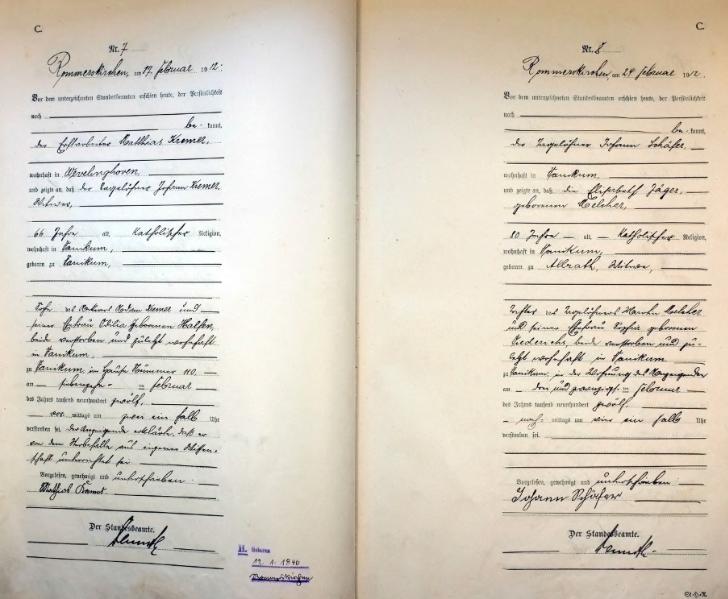 C.
Nr. 7
Rommerskirchen, am 17. Februar 1912.
Vor dem unterzeichneten Standesbeamten erschien heute, der Persönlichkeit
nach
be-kannt,
der Matthias Kremer,
wohnhaft in Wevelinghoven,
und zeigte an, daß der Tagelöhner Johann Kremer,
Witwer,
66 Jahre alt, Katholischer Religion,
wohnhaft in Vanikum,
geboren zu Vanikum,
Sohn des Kremer und
seiner Ehefrau Odilia geborenen
beide verstorben und zuletzt wohnhaft
in Vanikum
zu Vanikum im Hause Nummer 110,
am siebenzehn Februar
des Jahres tausend neunhundert zwölf,
vor mittags um zwei ein halb Uhr
verstorben sei. Der Anzeigende erklärte, daß er
von dem Sterbefalle aus eigener Wissen-
schaft unterrichtet sei
Vorgelesen, genehmigt und unterschrieben
Mathias
Der Standesbeamte.
H.
12. 1. 1940
Rommerskirchen
C.
Nr. 8
Rommerskirchen, am 24. Februar 1912.
Vor dem unterzeichneten Standesbeamten erschien heute, der Persönlichkeit
nach
be-kannt,
der Tagelöhner Johann Schäfer,
wohnhaft in Vanikum,
und zeigte an, daß die Elisabeth Jäger,
geborenen
80 Jahre alt, Katholischer Religion,
wohnhaft in Vanikum,
geboren zu Allrath, Witwe,
Tochter des Tagelöhners
und seiner Ehefrau Sophia geborenen
beide verstorben und zu-
letzt wohnhaft in Vanikum
zu Vanikum, in der Wohnung des Anzeigenden
am drei und zwanzigsten Februar
des Jahres tausend neunhundert zwölf,
nach mittags um vier ein halb Uhr
verstorben sei.
Vorgelesen, genehmigt und unterschrieben
Johann Schäfer
Der Standesbeamte.